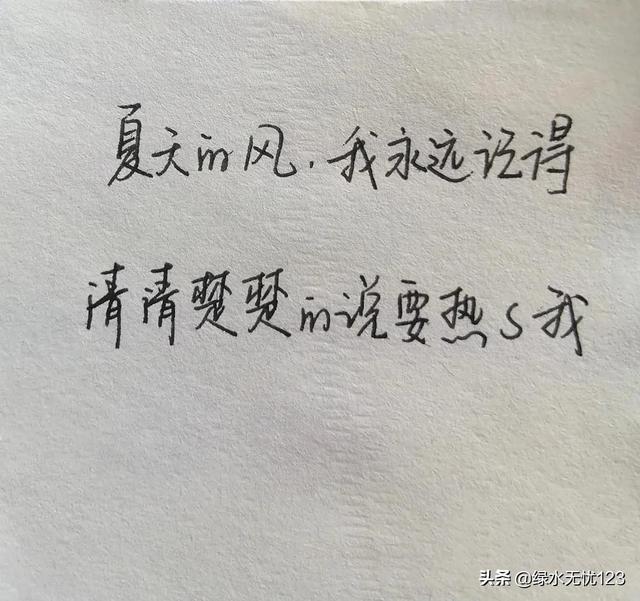 夏天的风.我永远记得
清清楚楚的说要热S我
头条 @绿水无忧123